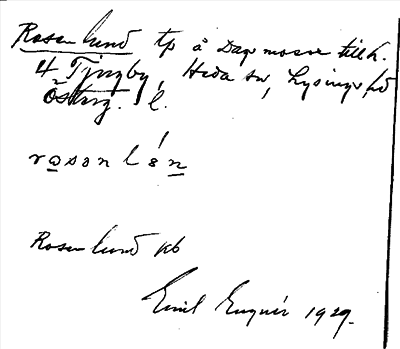 Rosenlund tp å Dagsmosse till h.
4 Tjugby, Heda sn, Lysings hd
Österg. l.
rosonlén
Rosenlund kb
Emil Eugnér 1929.